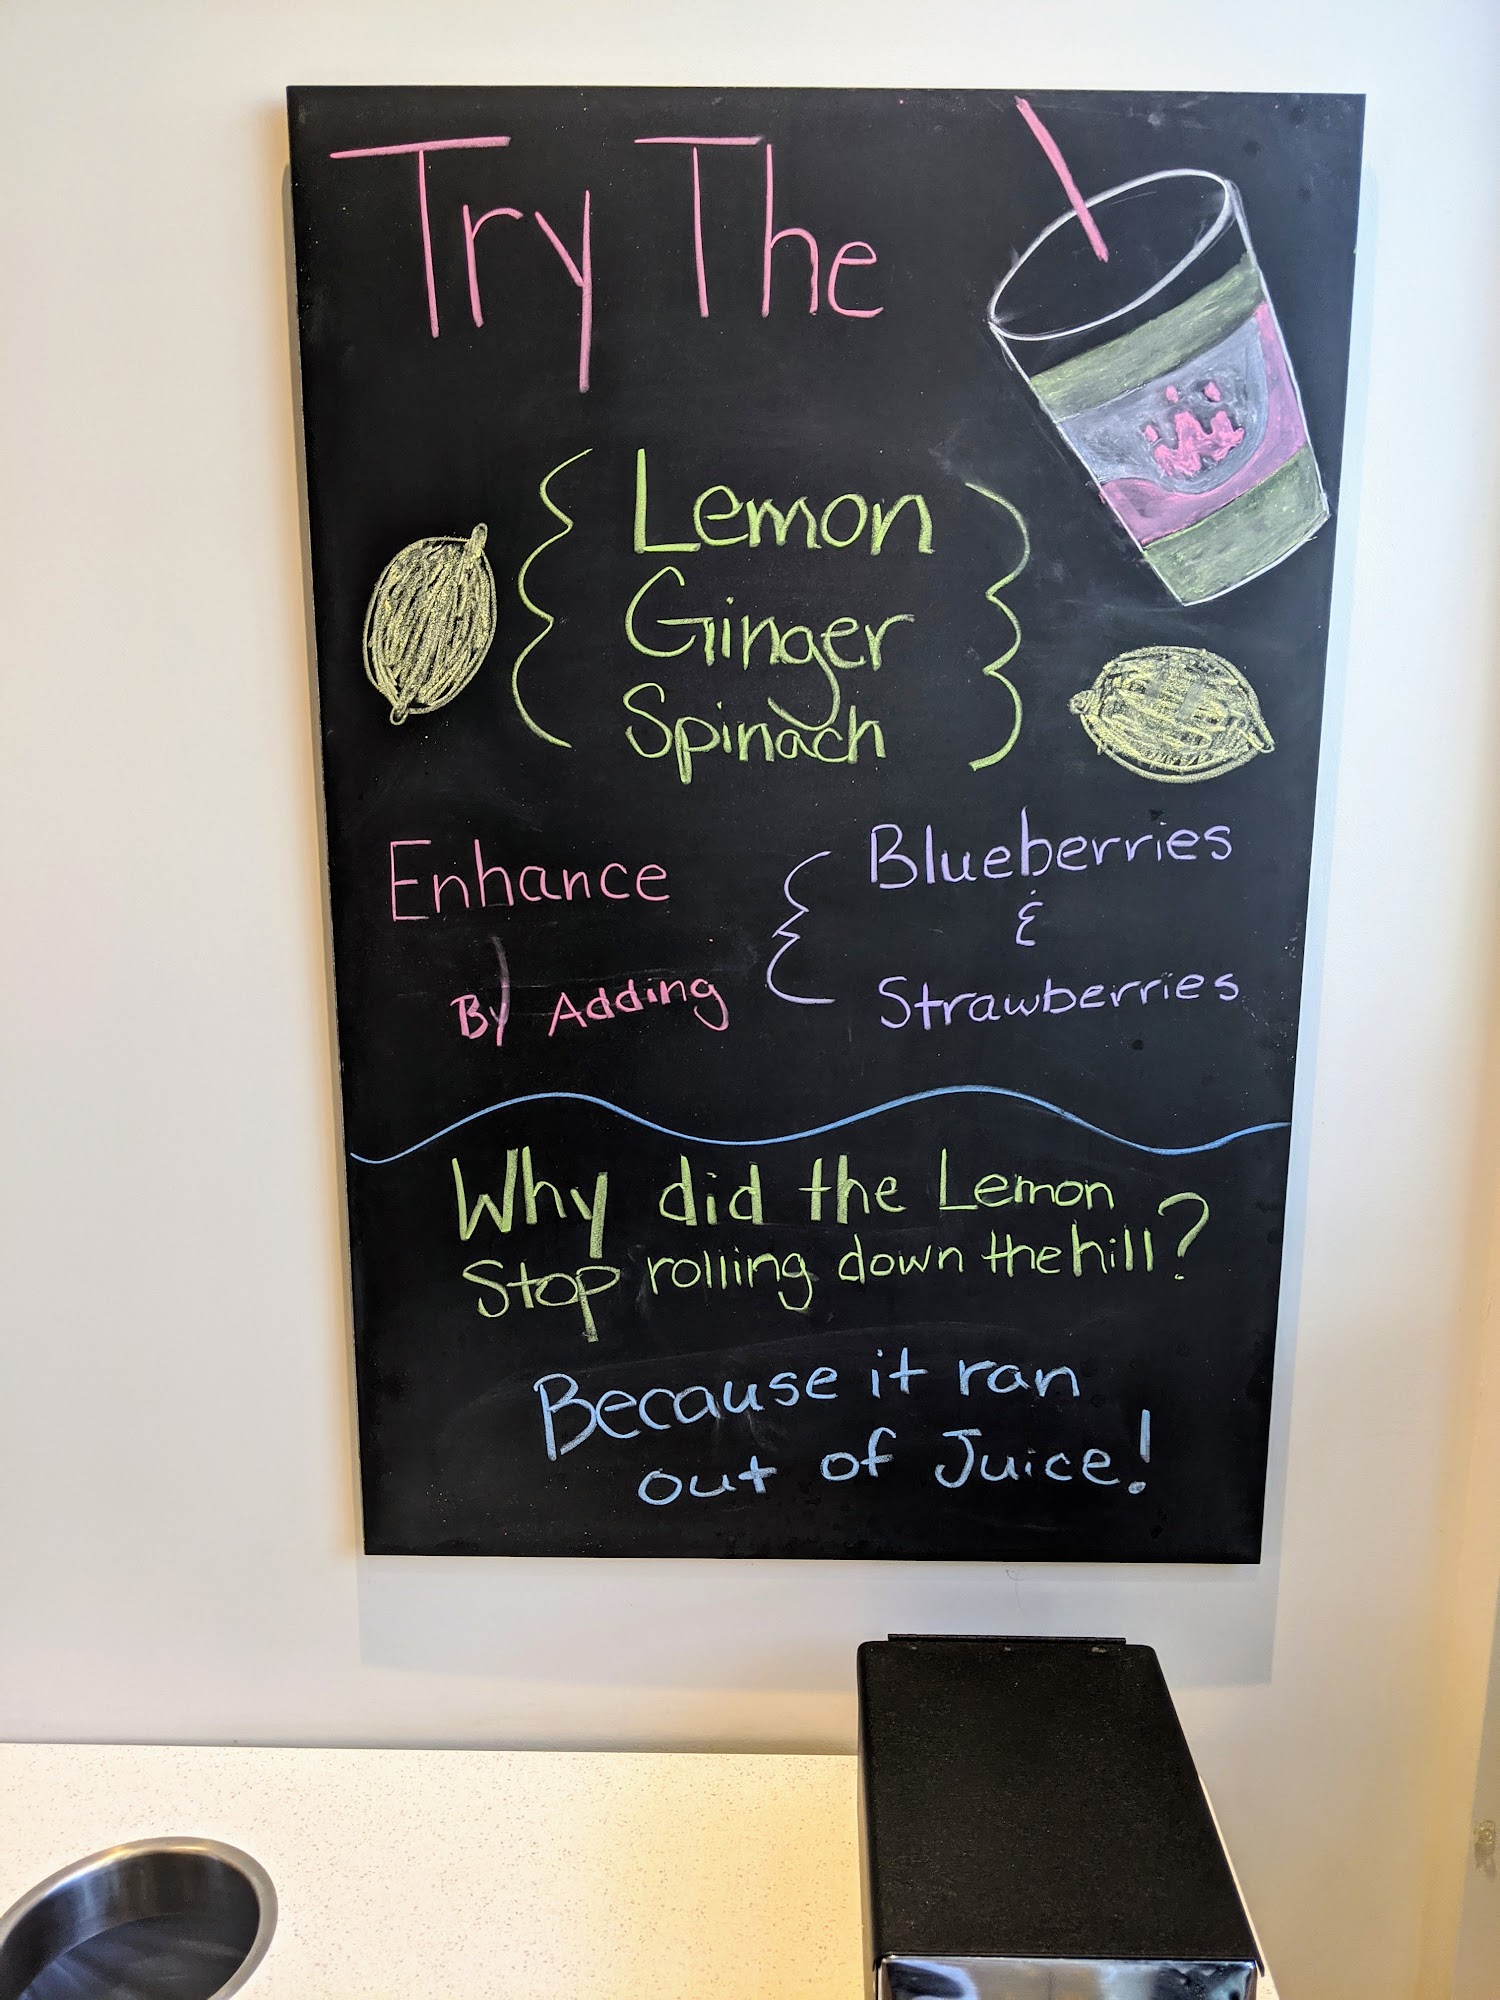 Try The
Lemon
Ginger
Spinach
Enhance
By Adding
Blueberries
&
Strawberries
Why did the Lemon
Stop rolling down the hill?
Because it ran
out of Juice!